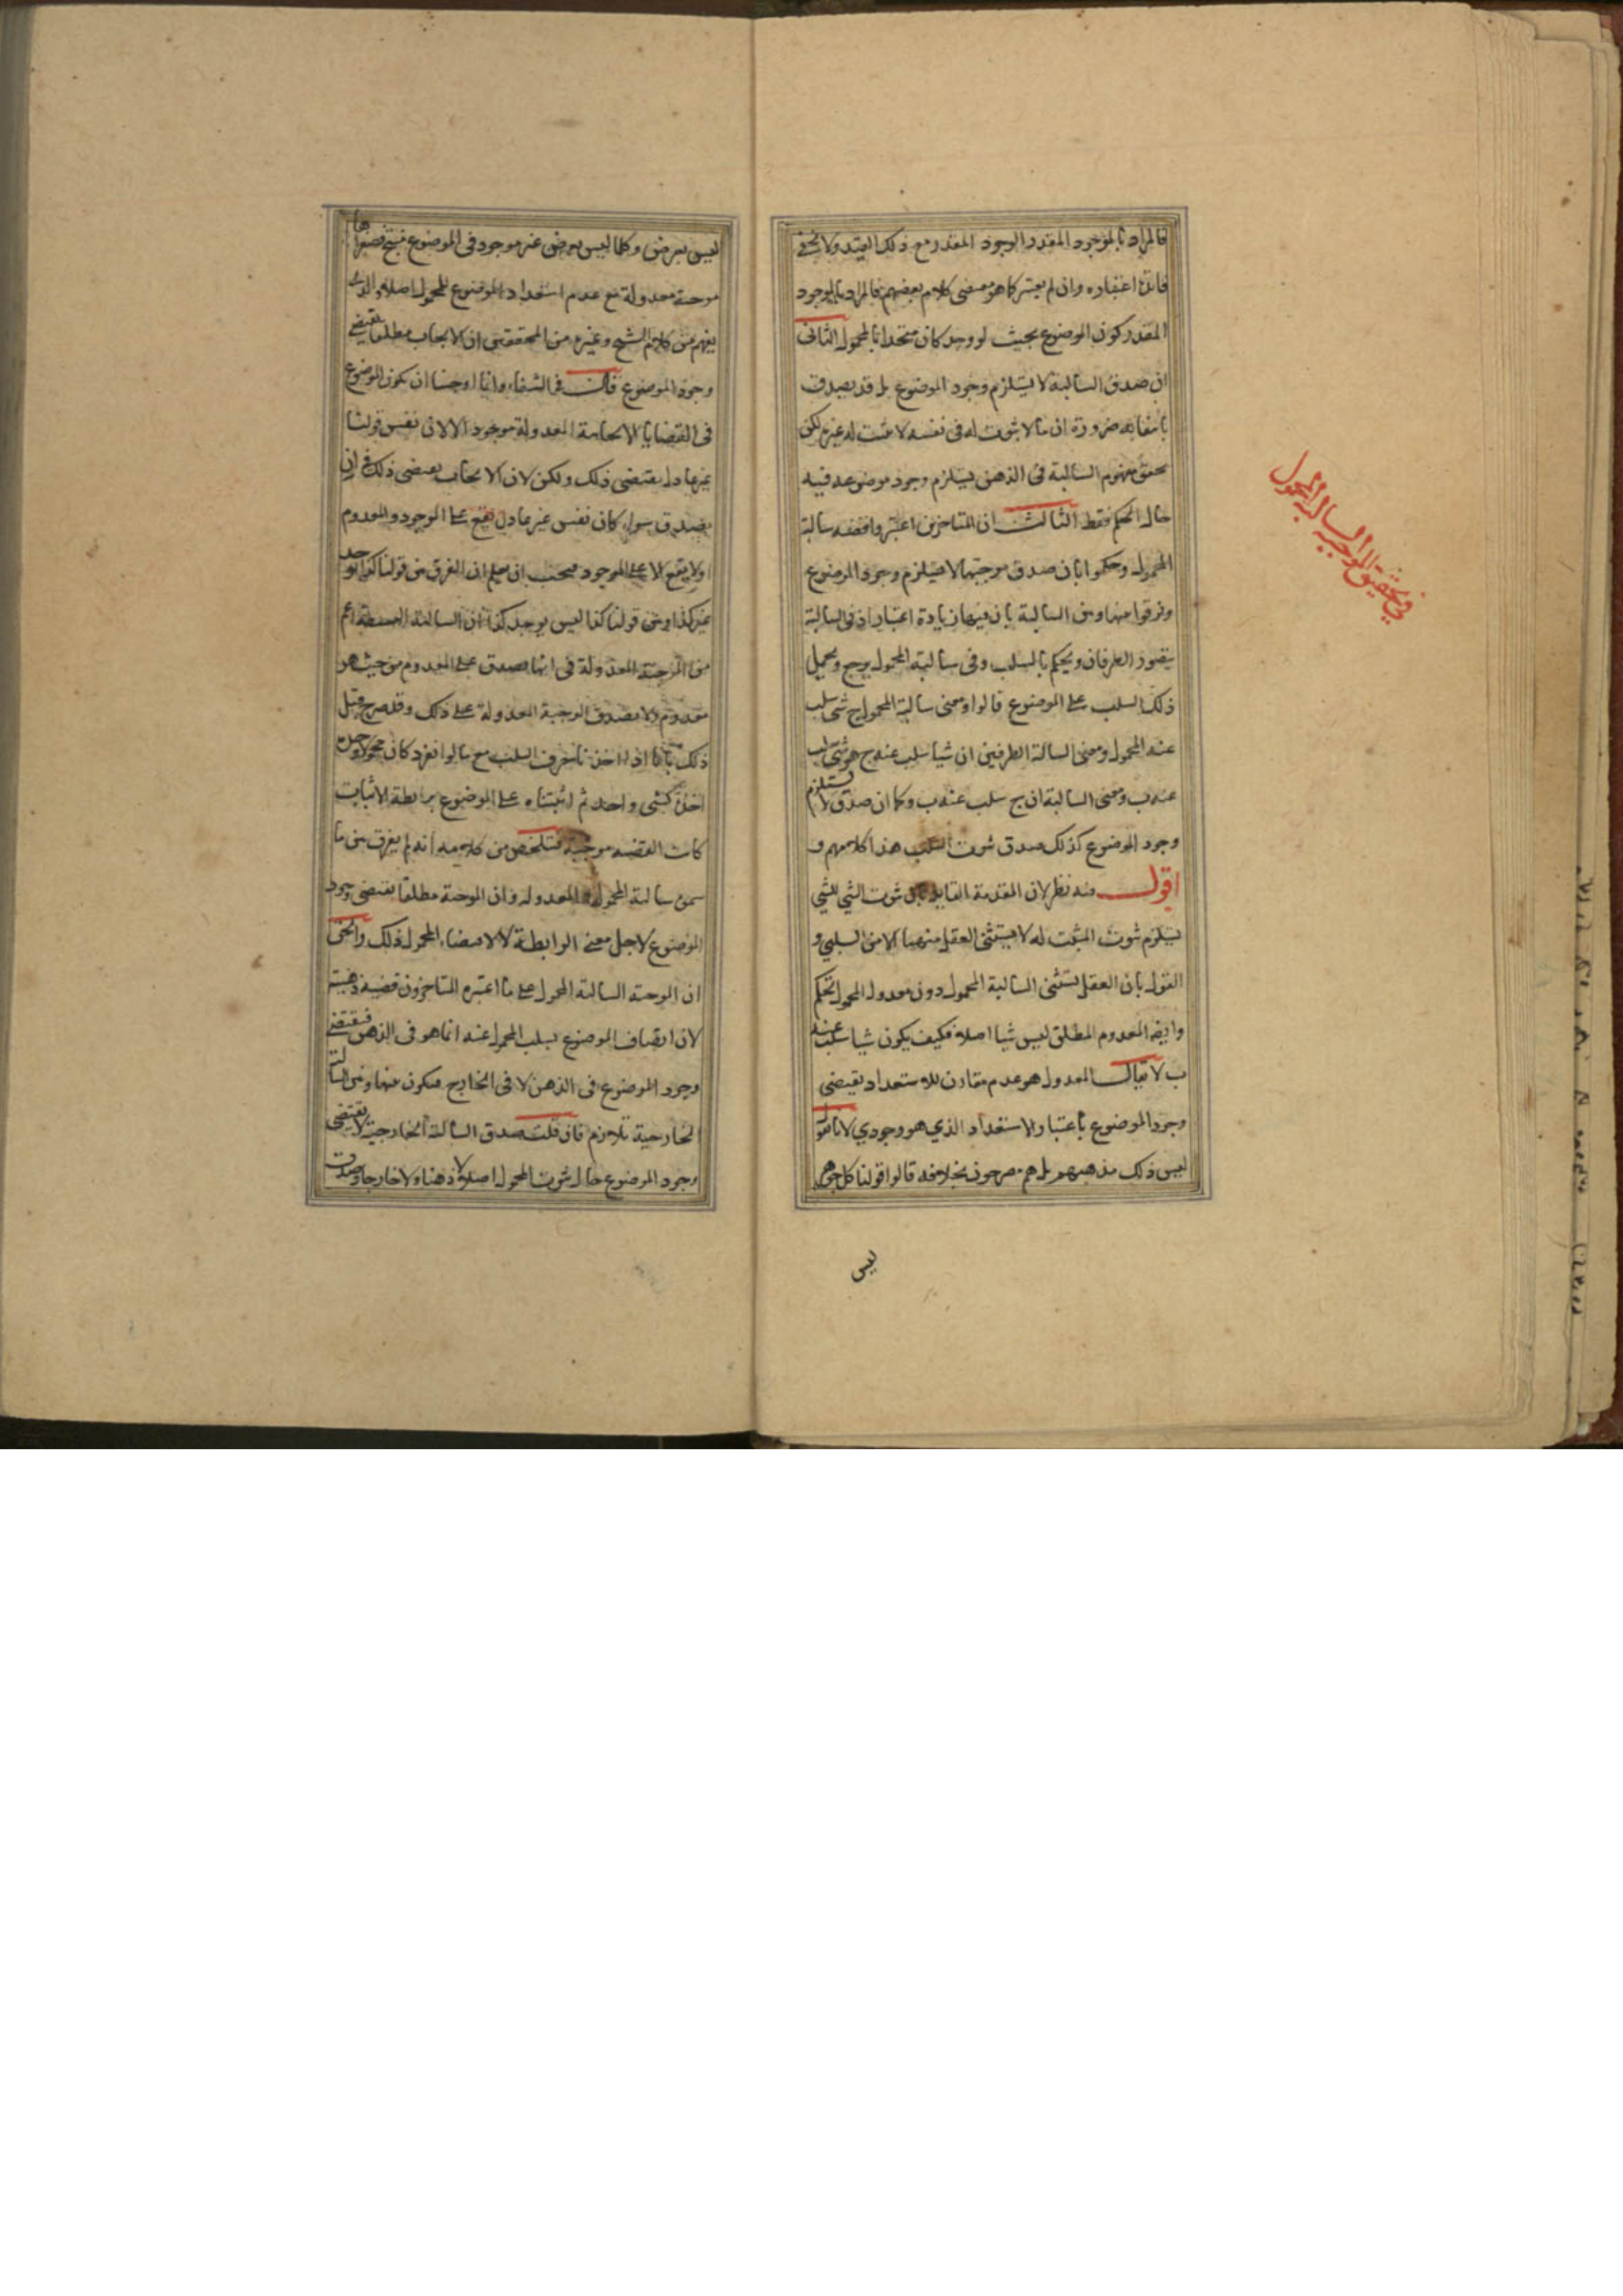 فالمراد بالموجود المقدر الوجود المقدر مع ذلك القيد ولا يخفى
فائدة اعتباره وان لم يعتبر كما هو مقتضى كلام بعضهم فالمراد بالموجود
المقدر كون الموضوع بحيث لو وجد كان متحدا بالمحمول الثاني
ان صدق السالبة لا يستلزم وجود الموضوع بل قد يصدق
بانتفائه ضرورة ان ما لا ثبوت له في نفسه لا يثبت له غيره لكن
تحقق مفهوم السالبة في الذهن يستلزم وجود موضوعه فيه
حال الحكم فقط الثالث ان المتاخرين اعتبروا قضية سالبة
المحمول وحكموا بان صدق موجبتها لا يستلزم وجود الموضوع
وفرقوا بينها وبين السالبة بان فيها زيادة اعتبار اذ في السالبة
يتصور الطرفان ويحكم بالسلب وفي سالبة المحمول يرجع ويحمل
ذلك السلب على الموضوع قالوا ومعنى سالبة المحمول ج شي سلب
عنه المحمول ومعنى السالبة الطرفين ان شيا سلب عنه ج هو شي سلب
عنه ب ومعنى السالبة ان ج سلب عنه ب وكما ان صدق لا يستلزم
وجود الموضوع كذلك صدق ثبوت السلب هذا كلامهم و
اقول فيه نظر لان المقدمة القايلة بان ثبوت الشي للشي
يستلزم ثبوت المثبت له لا يستثنى العقل منها الامر السلبي و
القول بان العقل يستثنى السالبة المحمول دون معدول المحمول تحكم
وايضا المعدوم المطلق ليس شيا اصلا فكيف يكون شيا سلب عنه
ب لا يقال المعدول هو عدم مقارن للاستعداد يقتضى
وجود الموضوع باعتبار الاستعداد الذي هو وجودي لانا نقول
ليس ذلك مذهبهم بل هم مصرحون بخلافه قالوا قولنا كل جوهر
ليس
في تحقيق الموجبة السالبة المحمول
ليس بعرض وكلما ليس بعرض غير موجود في الموضوع ينتج فصغراها
موجبة معدولة مع عدم استعداد الموضوع للمحمول اصلا والذي
يفهم من كلام الشيخ وغيره من المحققين ان الايجاب مطلقا يقتضي
وجود الموضوع قال في الشفاء وانما اوجبنا ان يكون الموضوع
في القضايا الايجابية المعدولة موجودا لا لان نفس قولنا
غير عادل يقتضى ذلك ولكن لان الايجاب يقتضى ذلك في ان
يصدق سواء كان نفس غير عادل يقع على الموجود والمعدوم
او لا يقع الا على الموجود فيجب ان يعلم ان الفرق بين قولنا كذا يوجد
غير كذا وبين قولنا كذا ليس يوجد كذا ان السالبة البسيطة اعم
من الموجبة المعدولة في انها تصدق على المعدوم من حيث هو
معدوم ولا يصدق الموجبة المعدولة على ذلك وقد صرح قبل
ذلك بانا اذا اخذنا حرف السلب مع ما لو انفرد كان محمولا وحده
اخذ كشي واحد ثم اثبتناه على الموضوع برابطة الاثبات
كانت القضية موجبة فتلخص من كلامه انه لم يفرق بين ما
سمى سالبة المحمول والمعدولة وان الموجبة مطلقا تقتضى وجود
الموضوع لاجل معنى الرابطة لا لاقتضاء المحمول ذلك والحق
ان الموجبة السالبة المحمول على ما اعتبره المتاخرون قضية ذهنية
لان اتصاف الموضوع بسلب المحمول عنه انما هو في الذهن فيقتضي
وجود الموضوع في الذهن لا في الخارج فيكون بينها وبين السالبة
الخارجية تلازم فان قلت صدق السالبة الخارجية لا يقتضى
وجود الموضوع حال ثبوت المحمول اصلا لا ذهنا ولا خارجا وصدق